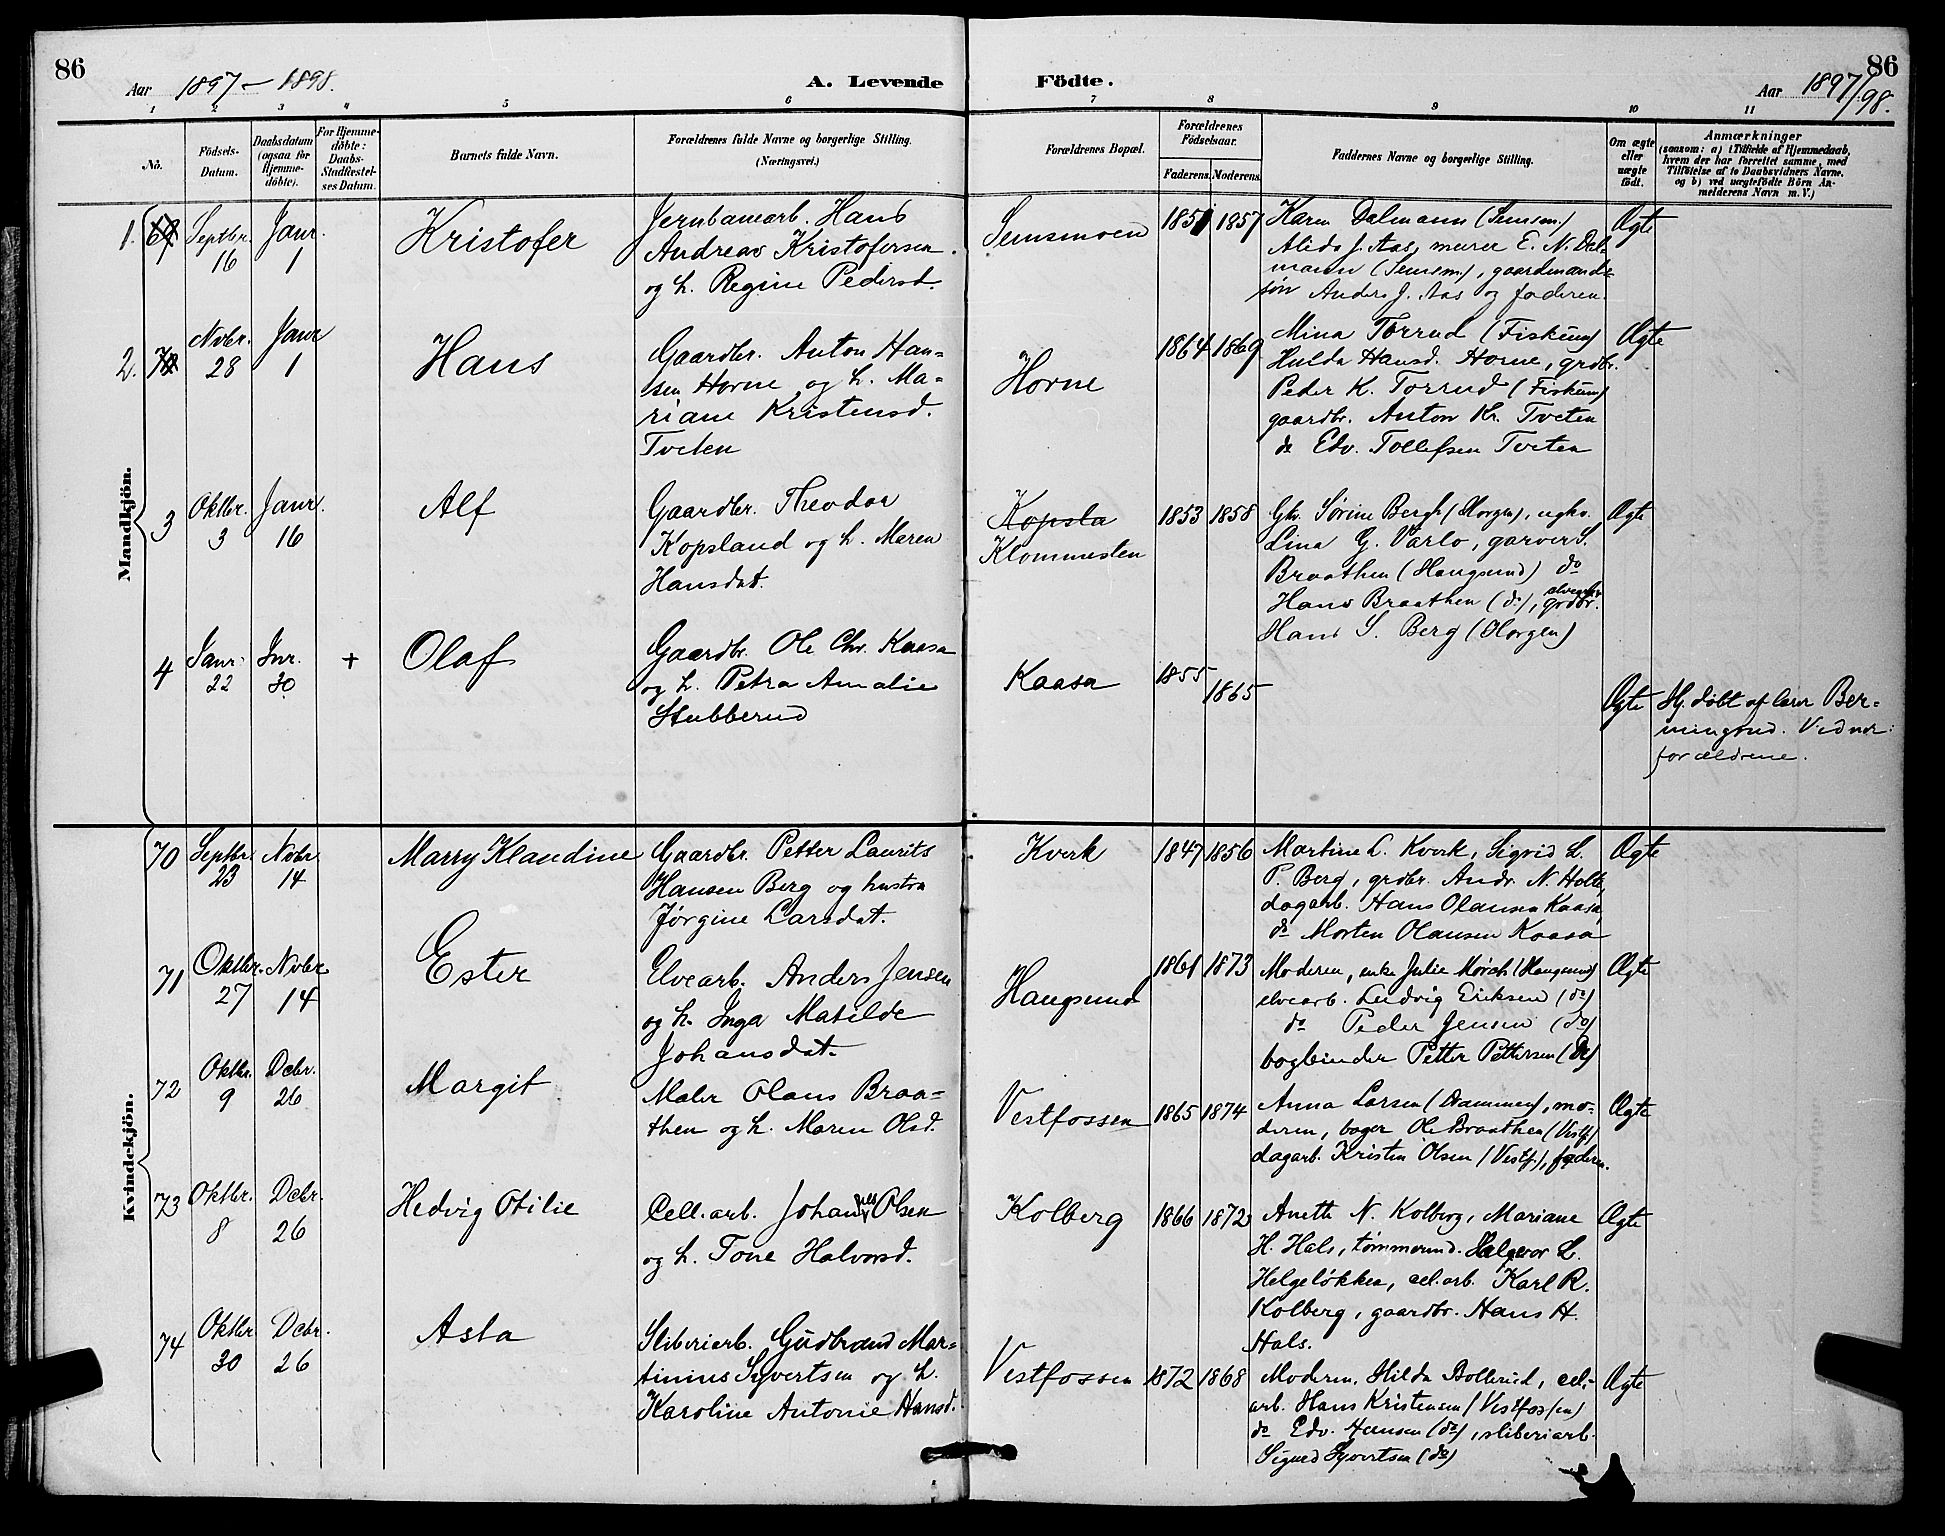 86
Aar 1897 – 1898.
A. Levende
Födte.
Aar 1897/98.
86
1 2 3 4 5 6 7 8 9 10 11
No.
Födsels-
Datum.
Daabsdatum
(ogsaa for
Hjemme-
döbte).
For Hjemme-
döbte:
Daabs-
Stadfæstel-
ses Datum.
Barnets fulde Navn.
Forældrenes fulde Navne og borgerlige Stilling.
(Næringsvei.)
Forældrenes Bopæl.
Forældrenes
Födselsaar.
Faderens. Moderens.
Faddernes Navne og borgerlige Stilling.
Om ægte
eller
uægte
födt.
Anmærkninger
(saasom: a) i Tilfælde af Hjemmedaab,
hvem der har forrettet samme, med
Tilföielse af to Daabsvidners Navne,
og b) ved uægtefödte Börn An-
melderens Navn m. V.)
Mandkjön.
1. 69 Septbr. 16
Janr. 1
Kristofer
Jernbanearb. Hans
Andreas Kristofersen
og h. Regine Pedersd.
Semsmoen
1851 1857
Karen Dalmann (Semsm.)
Alida J. Aas, murer E. N. Dal-
mann (Semsm.), gaardmands-
søn Anders J. Aas og faderen.
Ægte
2. 70 Novbr. 28
Janr 1
Hans
Gaardbr. Anton Han-
sen Horne og h. Ma-
riane Kristensd.
Tveten
Horne
1864 1869
Mina Torrud (Fiskum)
Hulda Hansd. Horne, grdbr.
Peder K. Torrud (Fiskum)
gaardbr. Anton Kr. Tveten
do Edv. Tollefsen Tveten
Ægte
3 Oktbr. 3
Janr. 16
Alf
Gaardbr. Theodor
Kopsland og h. Maren
Hansdat.
Kopsla
Klommesten
1853 1858
Gkv. Sørine Bergh (Horgen), ugkv.
Lina G. Varlo, garver S.
Braathen (Haugsund) do
Hans Braathen (do), grdbr.
Hans S. Berg (Horgen)
Ægte
4 Janr. 22
Jnr. 30
+
Olaf
Gaardbr. Ole Chr. Kaasa
og h. Petra Amalie
Stubberud
Kaasa
1855 1865
Ægte
Hj. døbt af lærer Ber-
mingrud. Vidner:
forældrene.
Kvindekjön.
70 Septbr. 23
Novbr 14
Marry Klaudine
Gaardbr. Petter Laurits
Hansen Berg og hustru
Jørgine Larsdat.
Kverk
1847 1856
Martine L. Kverk, Sigrid L.
P. Berg, grdbr. Andr. N. Holte,
dagarb. Hans Olausen Kaasa,
do Morten Olausen Kaasa
Ægte
71 Oktbr. 27
Novbr 14
Ester
Elvearb. Anders Jensen
og h. Inga Matilde
Johansdat.
Haugsund
1861 1873
Moderen, enke Julie Mørch (Haugsund)
elvearb. Ludvig Eriksen (do)
do Peder Jensen (do)
bogbinder Petter Pettersen (do)
Ægte
72 Oktbr. 9
Decbr. 26
Margit
Maler Olaus Braa-
then og h. Maren Olsd.
Vestfossen
1865 1874
Anna Larsen (Drammen), mo-
deren, bager Ole Braathen (Vestf.)
dagarb. Kristen Olsen (Vestf.), faderen.
Ægte
73 Oktbr. 8
Decbr. 26
Hedvig Otilie
Cell. arb. Johannes Olsen
og h. Tone Halvorsd.
Kolberg
1866 1872
Anette N. Kolberg, Mariane
H. Hals, tømmermd. Halgvor L.
Helgeløkken, cel. arb. Karl R.
Kolberg, gaardbr. Hans H.
Hals.
Ægte
74 Oktbr 30
Decbr. 26
Asta
Sliberiarb. Gudbrand Mar-
tinius Syvertsen og h.
Karoline Antonie Hansd.
Vestfossen
1872 1868
Moderen, Hilda Bollerud, cel.-
arb. Hans Kristensen (Vestfossen)
do Edv. Hansen (do), sliberiarb.
Sigurd Syvertsen (do)
Ægte